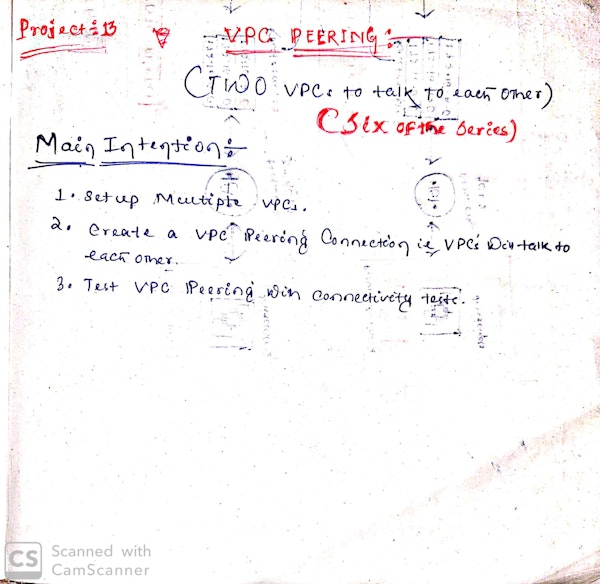 Project:- 13 VPC PEERING:-
(TWO VPCs to talk to each other)
(Six of the Series)
Main Intention:-
1. Setup Multiple VPCs.
2. Create a VPC Peering Connection ie VPC's Will talk to
each other.
3. Test VPC Peering with connectivity tests.
CS Scanned with
CamScanner